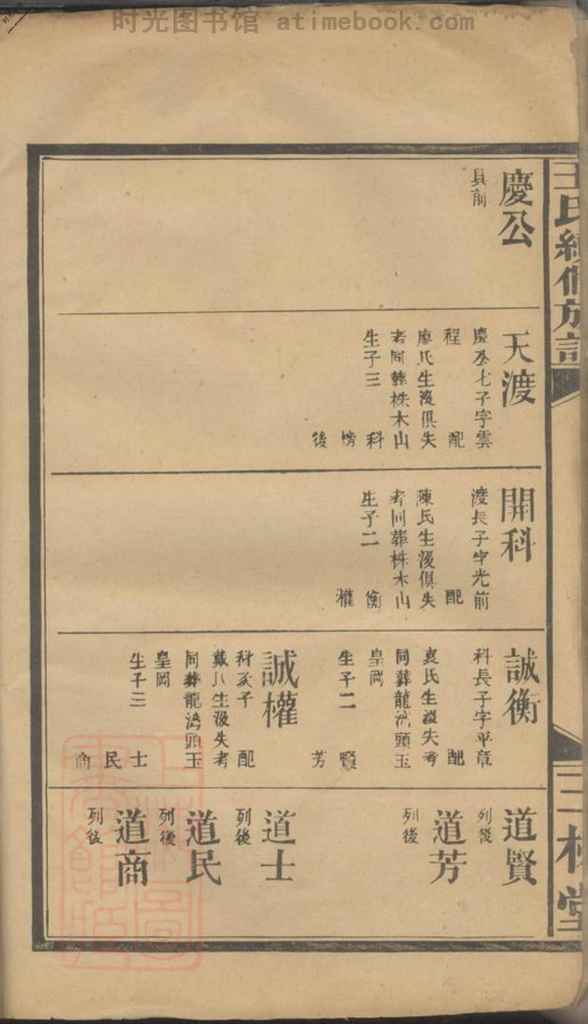 时光图书馆 atimebook.com
王氏續修族譜
三槐堂
慶公
具前
天渡
慶公七子字雲
程 配
廖氏生歿俱失
考同葬株木山
生子三 科
榜
後
開科
渡長子字光前
配
陳氏生歿俱失
考同葬株木山
生子二 衡
權
誠衡
科長子字平章
配
袁氏生歿失考
同葬龍鴻頭玉
皇岡
生子二 賢
芳
誠權
科次子 配
戴氏生歿失考
同葬龍鴻頭玉
皇岡
生子三 士
民
商
道賢
列後
道芳
列後
道士
列後
道民
列後
道商
列後